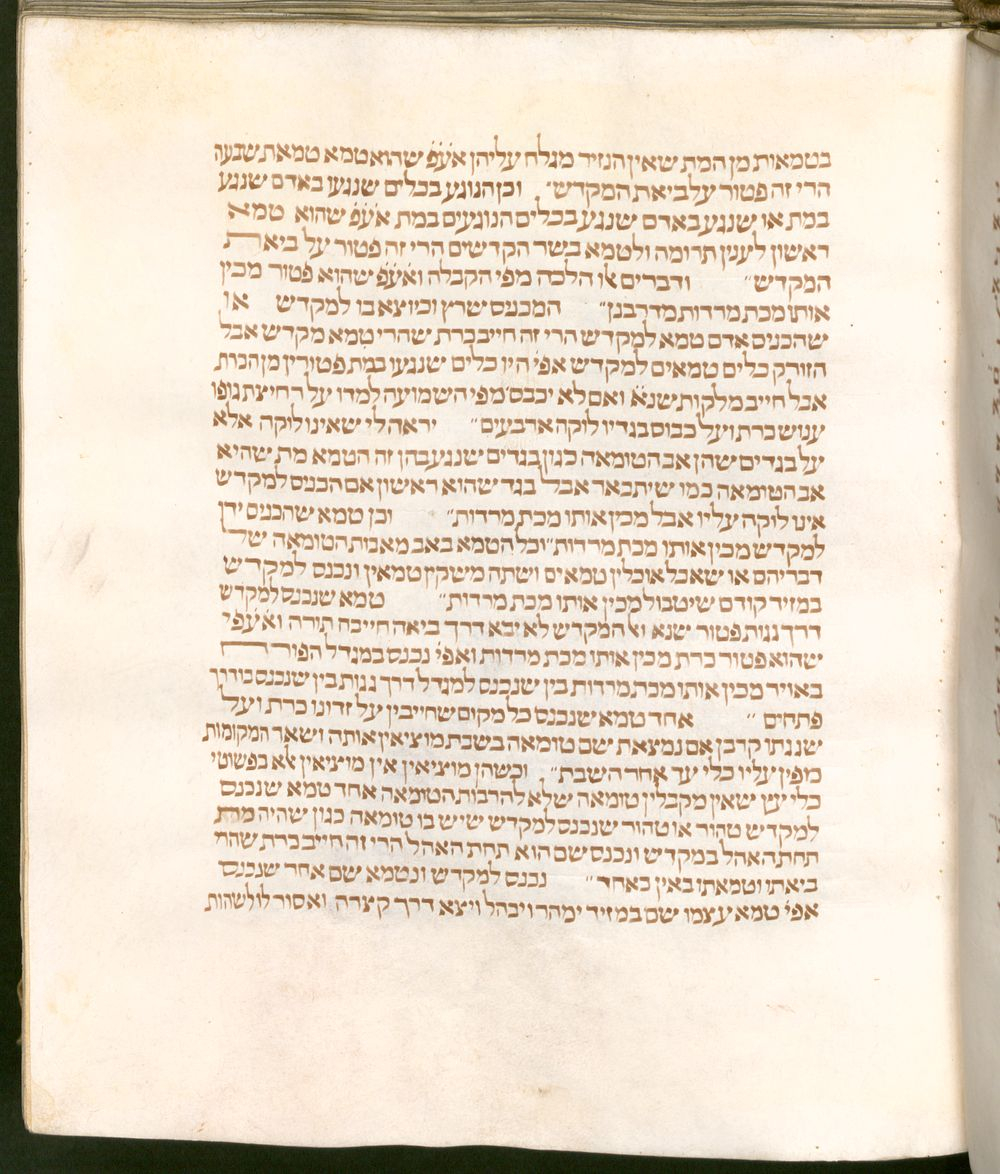 בטמאות מן המת שאין הנזיר מגלח עליהן אעפ שהוא טמא טמאת שבעה
הרי זה פטור על ביאת המקדש״ וכן הנוגע בכלים שנגעו באדם שנגע
במת או שנגע באדם שנגע בכלים הנוגעים במת אעפ שהוא טמא
ראשון לענין תרומה ולטמא בשר הקדשים הרי זה פטור על ביאת
המקדש״ ודברים אלו הלכה מפי הקבלה ואעפ שהוא פטור מכין
אותו מכת מרדות מדרבנן״ המכניס שרץ וכיוצא בו למקדש או
שהכניס אדם טמא למקדש הרי זה חייב כרת שהרי טמא מקדש אבל
הזורק כלים טמאים למקדש אפי היו כלים שנגעו במת פטור מן הכרת
אבל חייב מלקות שנא ואם לא יכבס מפי השמועה למדו על רחיצת גופו
ענוש כרת ועל כבוס בגדיו לוקה ארבעים״ יראה לי שאינו לוקה אלא
על בגדים שהן אב הטומאה כגון בגדים שנגע בהן זה הטמא מת שהיא
אב הטומאה כמו שיתבאר אבל בגד שהוא ראשון אם הכניס למקדש
אינו לוקה עליו אבל מכין אותו מכת מרדות״ וכן טמא שהכניס ידו
למקדש מכין אותו מכת מרדות״ וכל הטמא באב מאבות הטומאה של
דבריהם או שאכל אוכלין טמאים ושתה משקין טמאין ונכנס למקדש
במזיד קודם שיטבול מכין אותו מכת מרדות״ טמא שנכנס למקדש
דרך גגות פטור שנא ואל המקדש לא יבא דרך ביאה חייבה תורה ואעפי
שהוא פטור כרת מכין אותו מכת מרדות ואפי נכנס במגדל הפורח
באויר מכין אותו מכת מרדות בין שנכנס למגדל דרך גגות בין שנכנס בו דרך
פתחים ״ אחד טמא שנכנס כל מקום שחייבין על זדונו כרת ועל
שגגתו קרבן אם נמצאת שם טומאה בשבת מוציאין אותה ושאר המקומות
מפין עליו כלי עד אחר השבת״ וכשהן מוציאין אין מוציאין אלא בפשוטי
כלי עץ שאין מקבלין טומאה שלא להרבות הטומאה אחד טמא שנכנס
למקדש טהור או טהור שנכנס למקדש שיש בו טומאה כגון שהיה מת
תחת האהל במקדש ונכנס שם הוא תחת האהל הרי זה חייב כרת שהרי
ביאתו וטמאתו באין כאחד״ נכנס למקדש ונטמא שם אחר שנכנס
אפי טמא עצמו שם במזיד ימהר ויבהל ויצא דרך קצרה ואסור לו לשהות